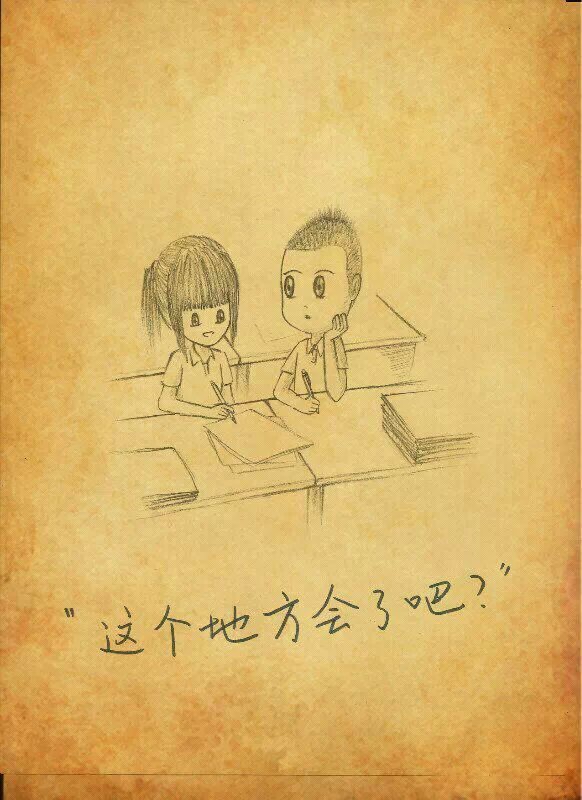 "这个地方会了吧?"